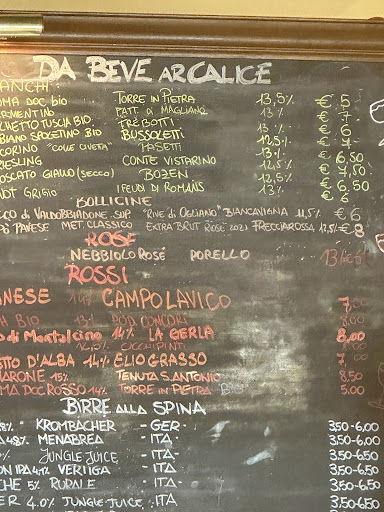 DA BEVE AR CALICE
BIANCHI
ROMA DOC BIO TORRE IN PIETRA 13,5% € 5
VERMENTINO FATT. DI MAGLIANO 13% € 7
TREBOTTI € 6
BIANO SPOLETINO BIO BUSSOLETTI 12,5% € 7
PECORINO "COLLE CIVETA" PASETTI 13% € 6,50
RIESLING CONTE VISTARINO 12,5% € 7,50
MOSCATO GIALLO (SECCO) BOZEN 12,5% € 6,50
PINOT GRIGIO I FEUDI DI ROMANS 13% € 6
BOLLICINE
CO DI VALDOBBIADENE SUP. "RIVE DI OGLIANO" BIANCAVIGNA 11,5% € 6
PAVESE MET. CLASSICO EXTRA BRUT ROSÉ 2021 FRECCIAROSSA 12,5% € 8
ROSÉ
NEBBIOLO ROSÉ PORELLO 13%
ROSSI
ANESE 14% CAMPOLAVICO 7,00
BIO 13%
DI MONTALCINO 14% LA GERLA 8,00
OCCHIPINTI
TTO D'ALBA 14% ELIO GRASSO
ARONE 15% TENUTA S. ANTONIO 8,50
MA DOC ROSSO 14% TORRE IN PIETRA BIO 5,00
BIRRE ALLA SPINA
KROMBACHER - GER - 3,50-6,00
4.8% MENABREA - ITA 3,50-6,00
JUNGLE JUICE - ITA 3,50-6,50
ON IPA 4.1% VERTIGA - ITA 3,50-6,50
CHE 5% RURALE - ITA 3,50-6,50
ER 4.0% JUNGLE JUICE - ITA 3,50-6,50